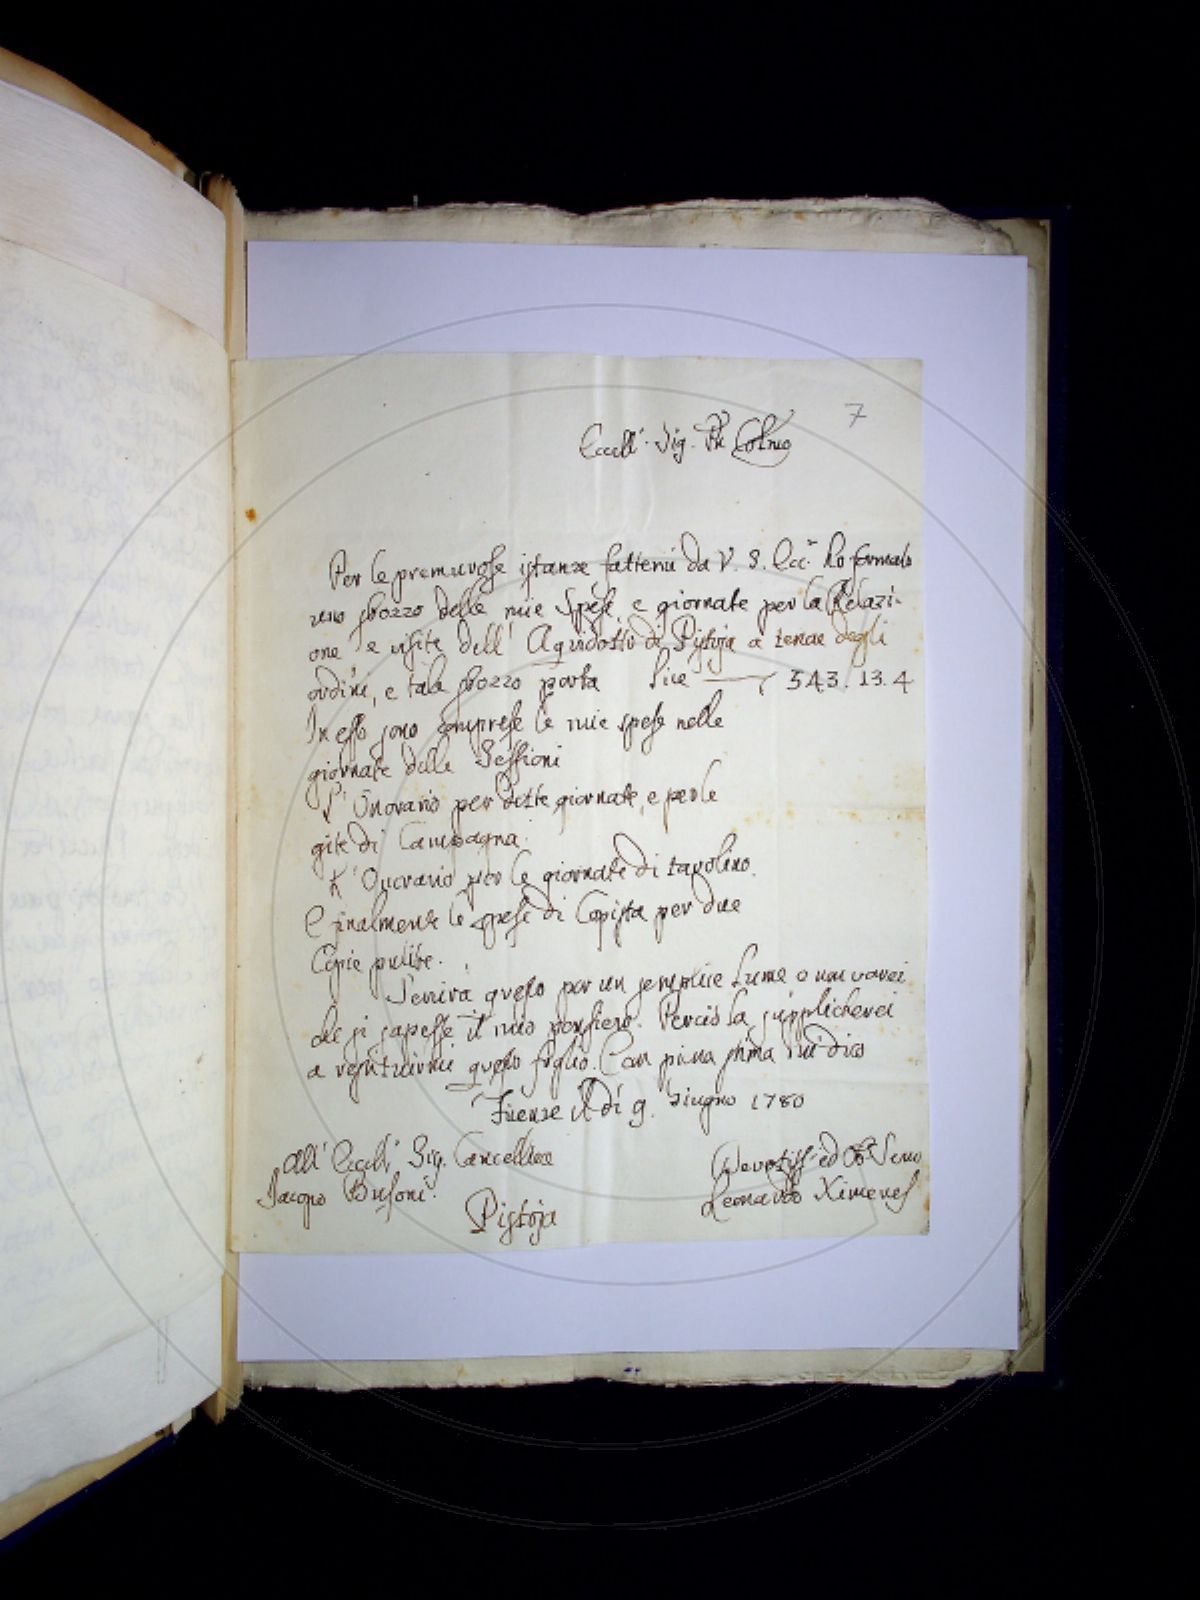 7
Eccell.' Sig. Pñ Colmo
Per le premurose istanze fattemi da V. S. Ecc. Ho formato
uno sbozzo delle mie Spese, e giornate per la Relazi-
one e visite dell' Aquidotto di Pistoja a tenor degli
ordini, e tale sbozzo porta Lire 543. 13. 4
In esso sono comprese le mie spese nelle
giornate delle Sessioni
L' Onorario per dette giornate, e per le
gite di Campagna.
L' Onorario per le giornate di tavolino.
E finalmente le spese di Copista per due
Copie pulite.
Servirà questo per un semplice Lume e non vorrei
che si sapesse il mio pensiero. Perciò la supplicherei
a restituirmi questo foglio. Con piena stima mi dico
Firenze il dì 9. Giugno 1780
All' Eccell. Sig. Cancelliere
Jacopo Busoni.
Pistoja
Devotiss. ed Obb. Servo
Leonardo Ximenes